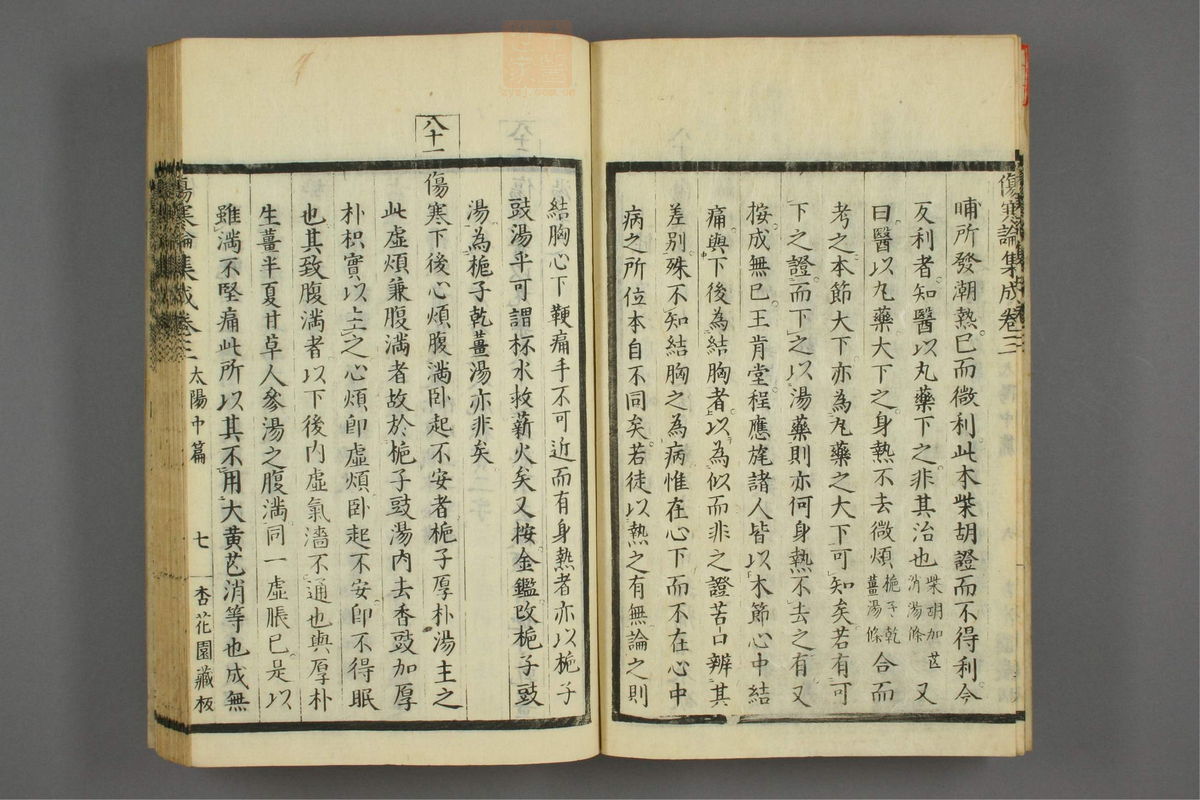 傷寒論集成卷三
晡所發潮熱已而微利此本柴胡證而不得利今
反利者知醫以丸藥下之非其治也柴胡加芒消湯條又
曰醫以丸藥大下之身熱不去微煩梔子乾薑湯條合而
考之本節大下亦為丸藥之大下可知矣若有可
下之證而下之以湯藥則亦何身熱不去之有又
按成無已王肯堂程應旄諸人皆以本節心中結
痛與下後為結胸者以為似而非之證苦口辨其
差別殊不知結胸之為病惟在心下而不在心中
病之所位本自不同矣若徒以熱之有無論之則
結胸心下鞕痛手不可近而有身熱者亦以梔子
豉湯乎可謂杯水救薪火矣又按金鑑改梔子豉
湯為梔子乾薑湯亦非矣
八十一
傷寒下後心煩腹滿卧起不安者梔子厚朴湯主之
此虛煩兼腹滿者故於梔子豉湯內去香豉加厚
朴枳實以主之心煩即虛煩卧起不安即不得眠
也其致腹滿者以下後內虛氣濇不通也與厚朴
生薑半夏甘草人參湯之腹滿同一虛脹已是以
雖滿不堅痛此所以其不用大黃芒消等也成無
傷寒論集成卷三 太陽中篇 七 杏花園藏板